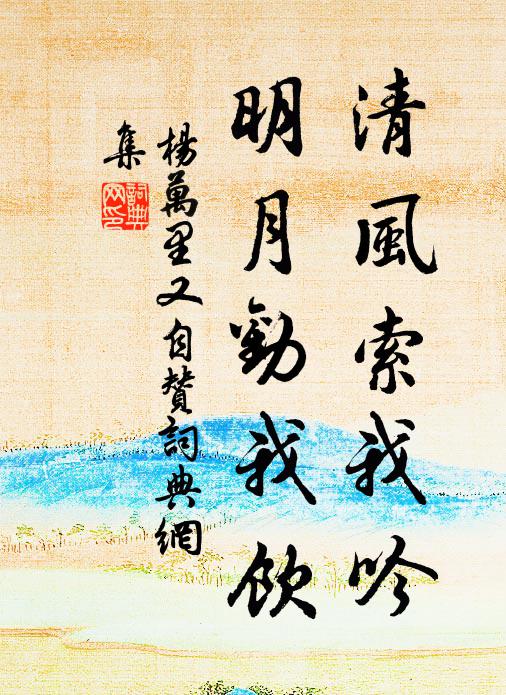 清風索我吟
明月勸我飲
楊萬里又自贊詞典網
集
詞典
網印